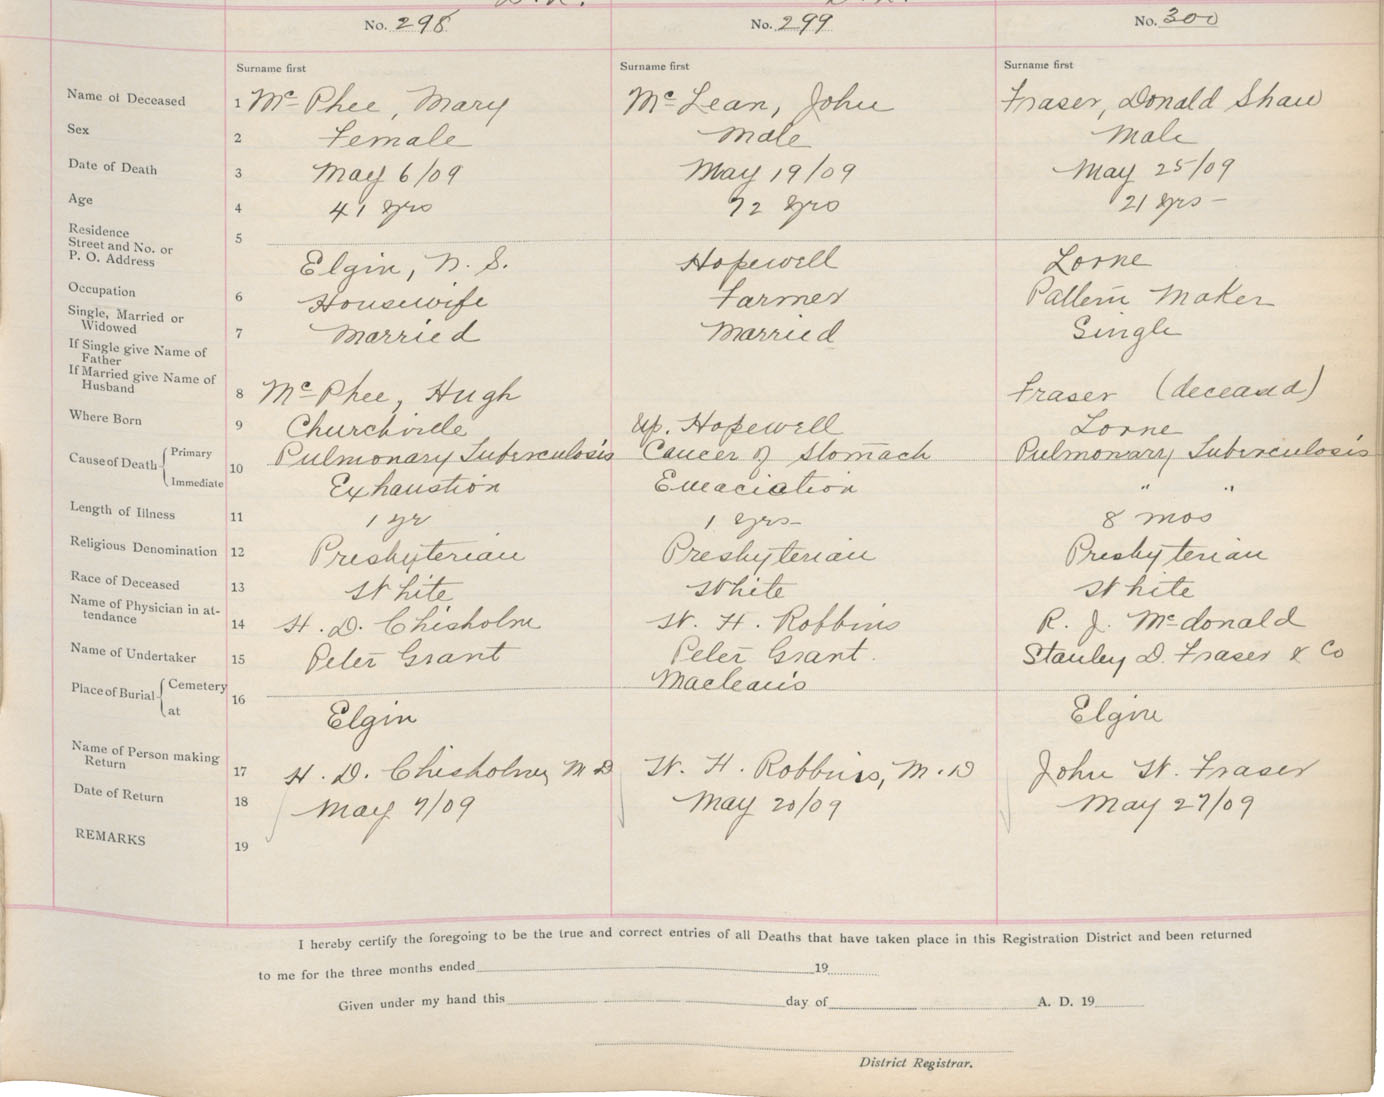 No. 298 No. 299 No. 300
Surname first Surname first Surname first
Name of Deceased 1 McPhee, Mary McLean, John Fraser, Donald Shaw
Sex 2 Female Male Male
Date of Death 3 May 6/09 May 19/09 May 25/09
Age 4 41 yrs 72 yrs 21 yrs -
Residence
Street and No. or
P. O. Address 5 Elgin, N. S. Hopewell Lorne
Occupation 6 Housewife Farmer Pattern Maker
Single, Married or
Widowed 7 Married Married Single
If Single give Name of
Father
If Married give Name of
Husband 8 McPhee, Hugh Fraser (deceased)
Where Born 9 Churchville Up. Hopewell Lorne
Cause of Death Primary 10 Pulmonary Tuberculosis Cancer of Stomach Pulmonary Tuberculosis
Immediate Exhaustion Emaciation " "
Length of Illness 11 1 yr 1 yrs- 8 mos
Religious Denomination 12 Presbyterian Presbyterian Presbyterian
Race of Deceased 13 White White White
Name of Physician in at-
tendance 14 H. D. Chisholm W. H. Robbins R. J. McDonald
Name of Undertaker 15 Peter Grant Peter Grant. Stanley D. Fraser & Co
Place of Burial Cemetery 16 Macleans
at Elgin Elgin
Name of Person making
Return 17 H. D. Chisholm, M D W. H. Robbins, M. D John W. Fraser
Date of Return 18 May 7/09 May 20/09 May 27/09
REMARKS 19
I hereby certify the foregoing to be the true and correct entries of all Deaths that have taken place in this Registration District and been returned
to me for the three months ended 19
Given under my hand this day of A. D. 19
District Registrar.